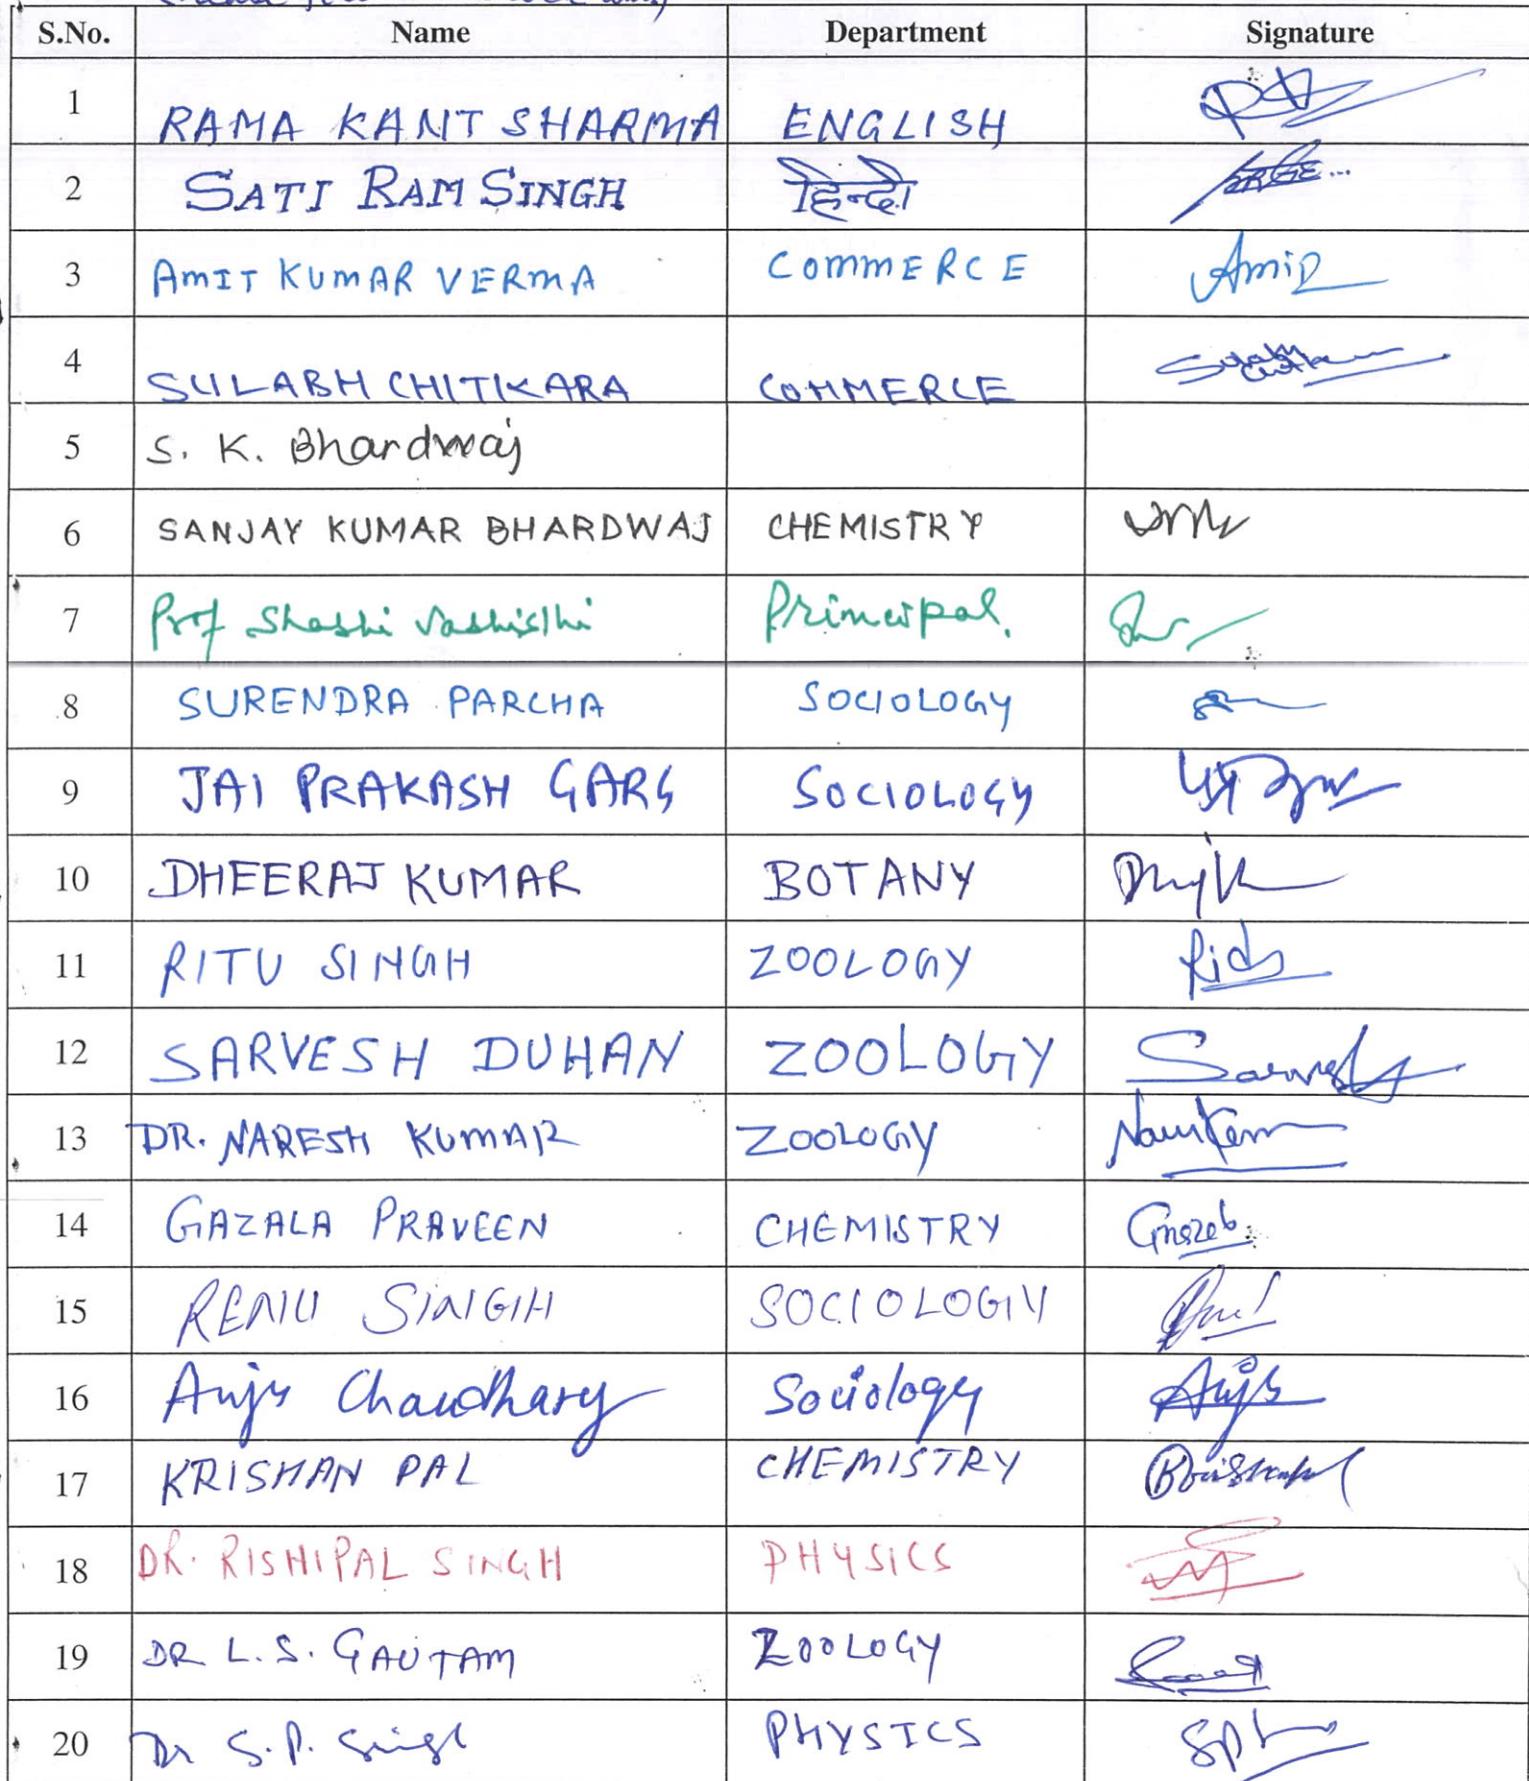 S.No. Name Department Signature
1 RAMA KANT SHARMA ENGLISH
2 SATI RAM SINGH हिन्दी
3 AMIT KUMAR VERMA COMMERCE Amit
4 SULABH CHITKARA COMMERCE
5 S. K. Bhardwaj
6 SANJAY KUMAR BHARDWAJ CHEMISTRY
7 Prof Shashi Vashisthi Principal.
8 SURENDRA PARCHA SOCIOLOGY
9 JAI PRAKASH GARG SOCIOLOGY
10 DHEERAJ KUMAR BOTANY
11 RITU SINGH ZOOLOGY
12 SARVESH DUHAN ZOOLOGY Sarvesh
13 DR. NARESH KUMAR ZOOLOGY
14 GAZALA PRAVEEN CHEMISTRY
15 RENU SINGH SOCIOLOGY
16 Anju Chaudhary Sociology Anju
17 KRISHAN PAL CHEMISTRY
18 DR. RISHIPAL SINGH PHYSICS
19 DR L.S. GAUTAM ZOOLOGY
20 Dr S.P. Singh PHYSICS